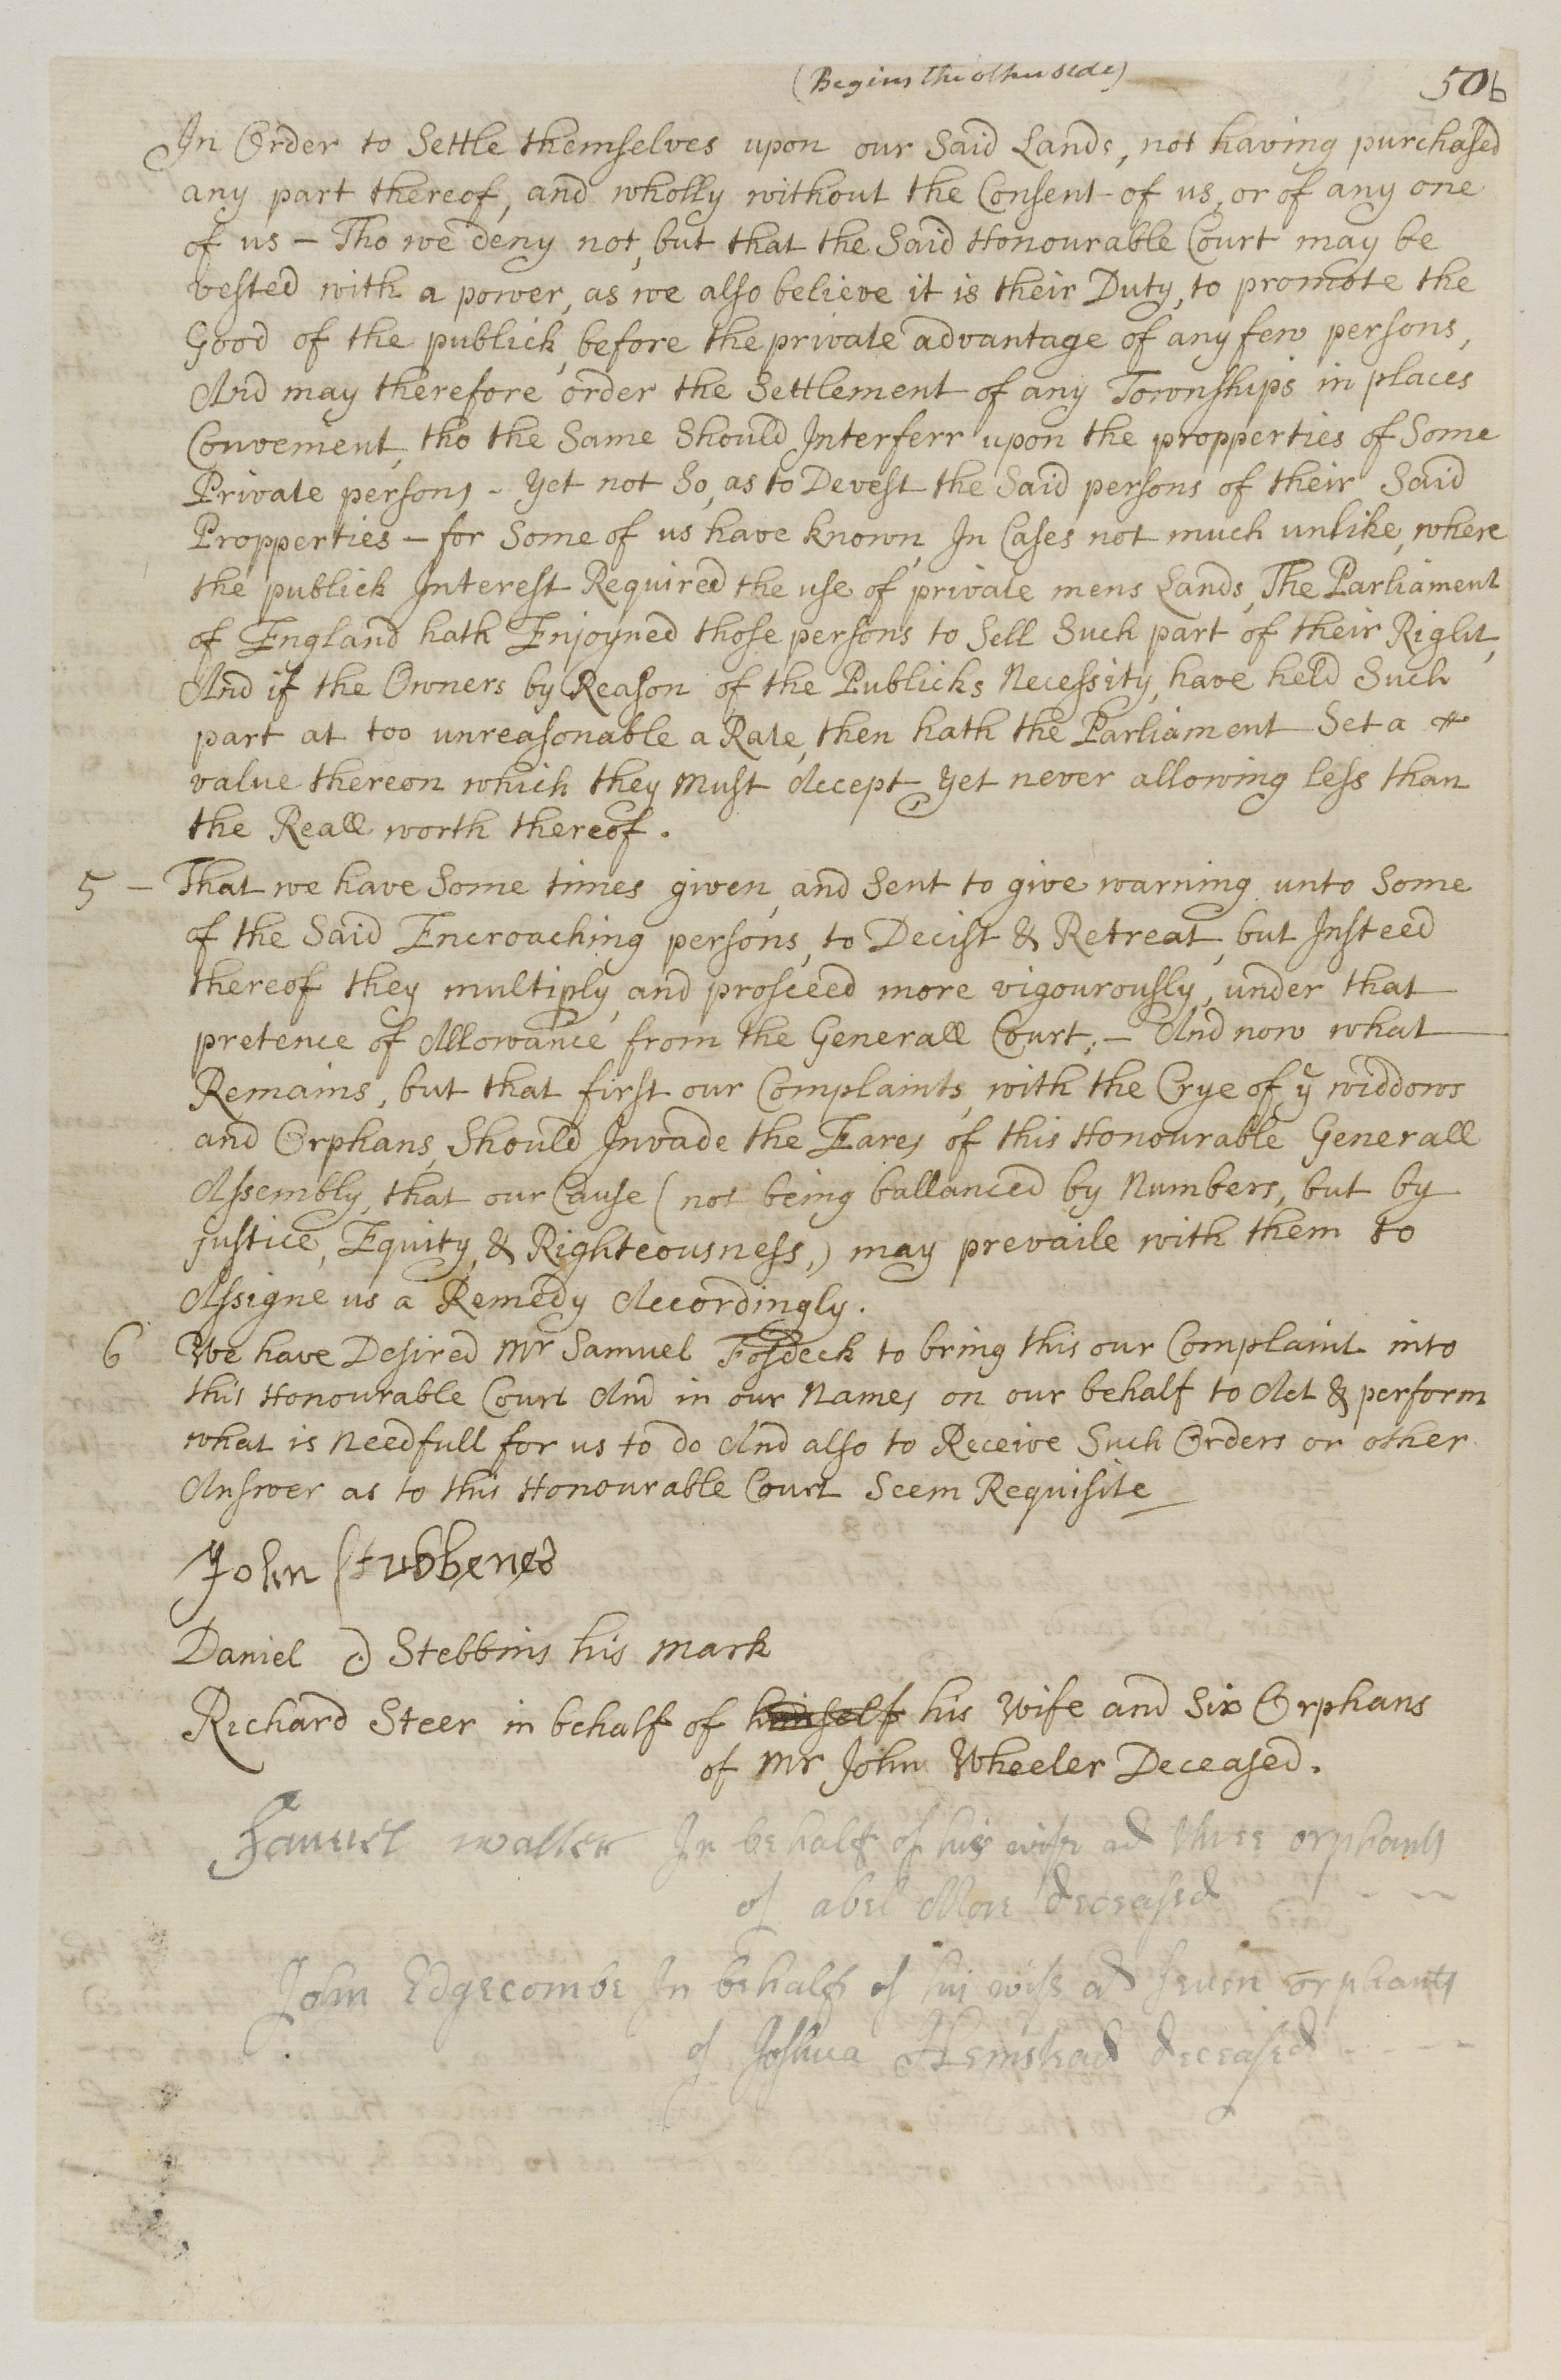 (Begins the other side)
50b
In Order to Settle themselves upon our Said Lands, not having purchased
any part thereof, and wholly without the Consent of us, or of any one
of us – Tho we deny not, but that the Said Honourable Court may be
vested with a power, as we also believe it is their Duty, to promote the
Good of the publick, before the private advantage of any few persons,
And may therefore order the Settlement of any Townships in places
Convenient, tho the Same Should Interferr upon the propperties of Some
Private persons – Yet not So, as to Devest the Said persons of their Said
Propperties – for Some of us have known, In Cases not much unlike, where
the publick Interest Required the use of private mens Lands, The Parliament
of England hath Enjoyned those persons to Sell Such part of their Right,
And if the Owners by Reason of the Publicks Necessity, have held Such
part at too unreasonable a Rate, then hath the Parliament Set a
value thereon which they Must Accept, Yet never allowing less than
the Reall worth thereof.
5 – That we have Some times given, and Sent to give warning unto Some
of the Said Encroaching persons, to Decist & Retreat, but Insteed
thereof they multiply, and prosceed more vigourously, under that
pretence of Allowance from the Generall Court; – And now what
Remains, but that first our Complaints, with the Crye of ye widdows
and Orphans, Should Invade the Eares of this Honourable Generall
Assembly, that our Cause (not being ballanced by Numbers, but by
justice, Equity, & Righteousness,) may prevaile with them to
Assigne us a Remedy Accordingly.
6 We have Desired Mr Samuel Fosdeck to bring this our Complaint into
this Honourable Court And in our Names on our behalf to Act & perform
what is Needfull for us to do And also to Receive Such Orders or other
Answer as to this Honourable Court Seem Requisite
John Stubbenes
Daniel Stebbins his mark
Richard Steer in behalf of himself his Wife and Six Orphans
of Mr John Wheeler Deceased.
Samuel waller In behalf of his wife ad three orphants
of abel More deceased
John Edgecombe In behalf of his wife ad seven orphants
of Joshua Hemshad deceased